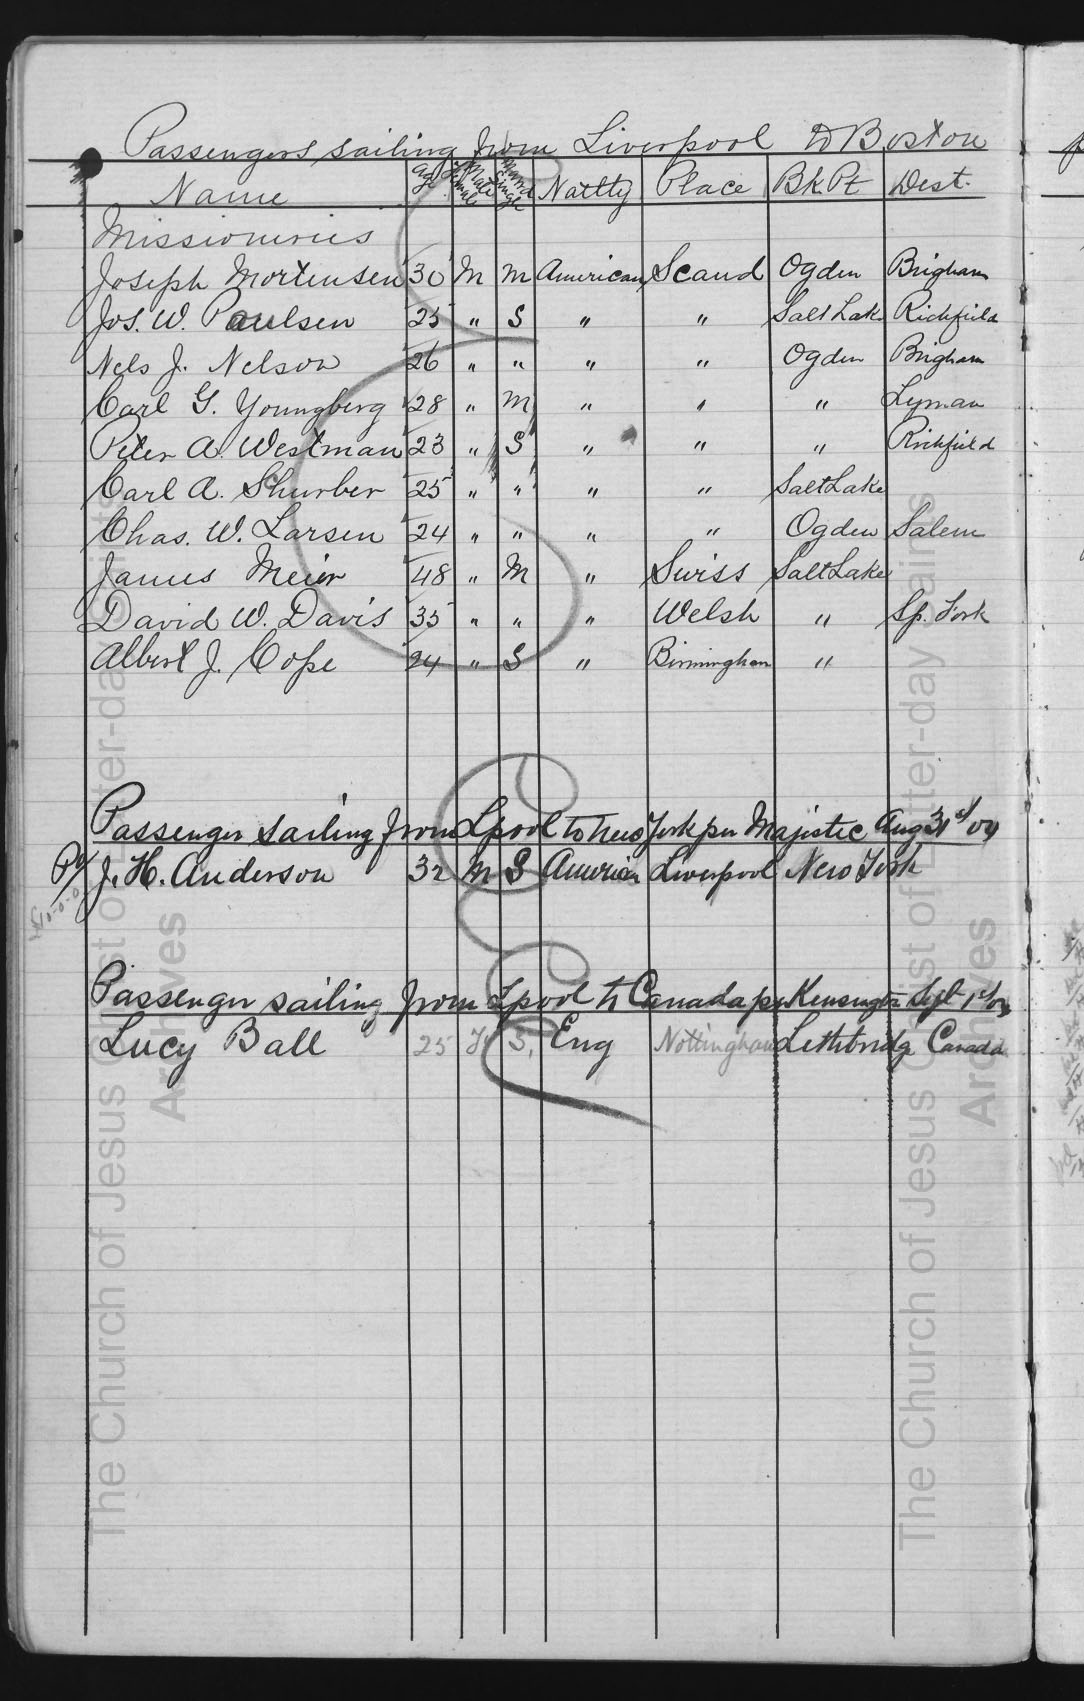 Passengers sailing from Liverpool to Boston
Name Age Male Female Married Single Natlty Place Bk Pt Dest.
Missionaries
Joseph Mortensen 30 M M American Scand Ogden Brigham
Jos. W. Paulsen 25 " S " " Salt Lake Richfield
Nels J. Nelson 26 " " " " Ogden Brigham
Carl G. Youngberg 28 " M " " " Lyman
Peter A. Westman 23 " S " " " Richfield
Carl A. Shurber 25 " " " " Salt Lake
Chas. W. Larsen 24 " " " " Ogden Salem
James Meier 48 " M " Swiss Salt Lake
David W. Davis 35 " " " Welsh " Sp. Fork
Albert J. Cope 24 " S " Birmingham "
Passenger sailing from Lpool to New York per Majestic Aug 31st 04
J. H. Anderson 32 M S American Liverpool New York
Passenger sailing from Lpool to Canada per Kensington Sept 1st/04
Lucy Ball 25 F S. Eng Nottingham Lethbridge Canada
The Church of Jesus Christ of Latter-day Saints
Archives
The Church of Jesus Christ of Latter-day Saints
Archives